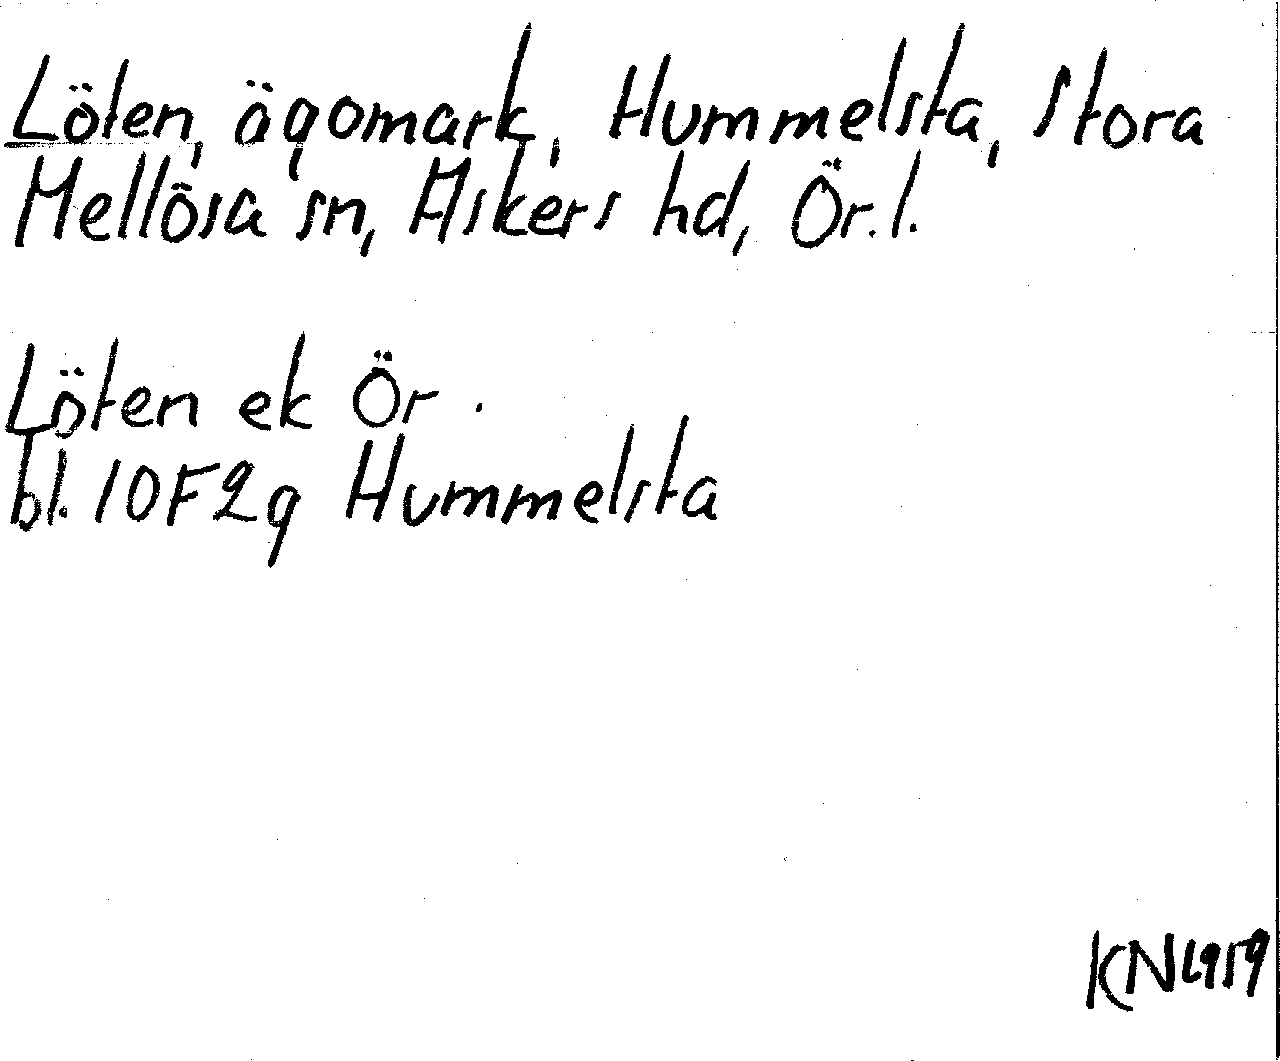 Löten, ägomark, Hummelsta, Stora
Mellösa sn, Askers hd, Ör. l.
Löten ek Ör.
bl. 10F2g Hummelsta